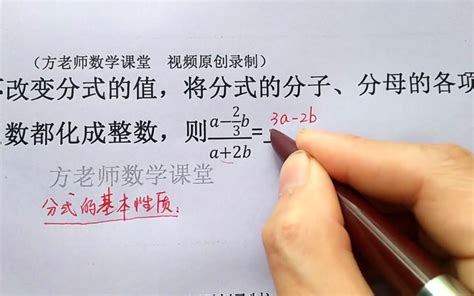 （方老师数学课堂 视频原创录制）
不改变分式的值，将分式的分子、分母的各项
数都化成整数，则(a-2/3b)/(a+2b)=3a-2b
方老师数学课堂
分式的基本性质：